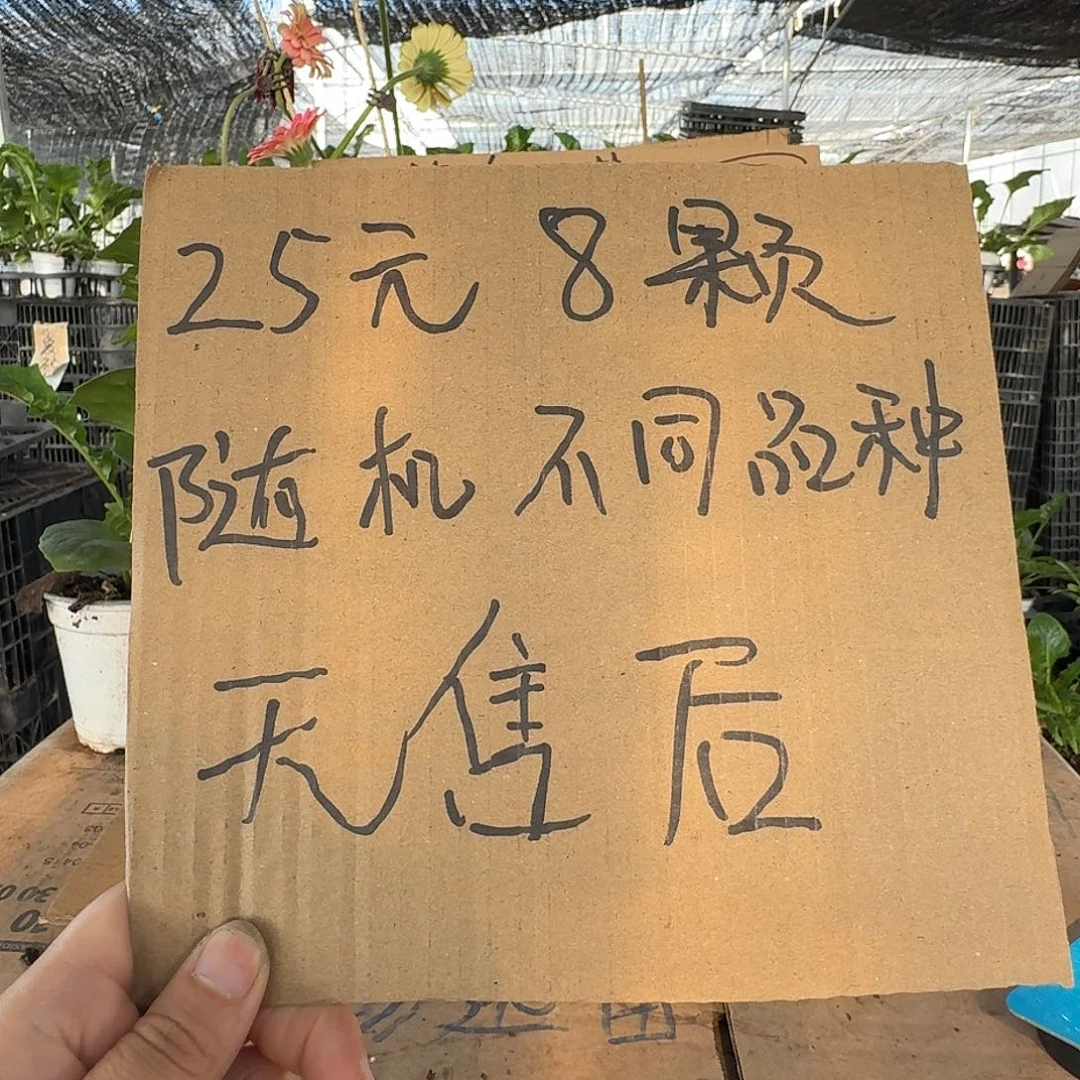 25元 8颗
随机 不同品种
无售后